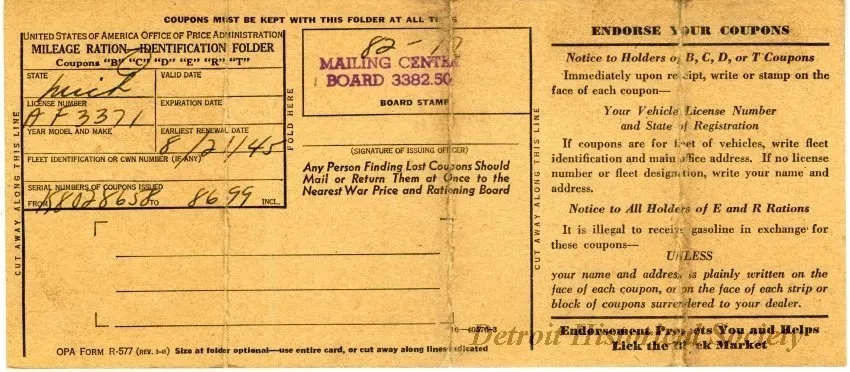 COUPONS MUST BE KEPT WITH THIS FOLDER AT ALL
UNITED STATES OF AMERICA OFFICE OF PRICE ADMINISTRATION
MILEAGE RATION—IDENTIFICATION FOLDER
Coupons "B" "C" "D" "E" "R" "T"
STATE
Mich
VALID DATE
LICENSE NUMBER
AF3371
EXPIRATION DATE
YEAR MODEL AND MAKE
EARLIEST RENEWAL DATE
8/21/45
FLEET IDENTIFICATION OR CWN NUMBER (IF ANY)
SERIAL NUMBERS OF COUPONS ISSUED
FROM TO 8699 INCL.
CUT AWAY ALONG THIS LINE
FOLD HERE
82-
MAILING CENTER
BOARD 3382.50
BOARD STAMP
(SIGNATURE OF ISSUING OFFICER)
Any Person Finding Lost Coupons Should
Mail or Return Them at Once to the
Nearest War Price and Rationing Board
16—40570-3
OPA FORM R-577 Size of folder optional—use entire card, or cut away along lines indicated
CUT AWAY ALONG THIS LINE
ENDORSE YOUR COUPONS
Notice to Holders of B, C, D, or T Coupons
Immediately upon receipt, write or stamp on the
face of each coupon—
Your Vehicle License Number
and State of Registration
If coupons are for fleet of vehicles, write fleet
identification and main office address. If no license
number or fleet designation, write your name and
address.
Notice to All Holders of E and R Rations
It is illegal to receive gasoline in exchange for
these coupons—
UNLESS
your name and address is plainly written on the
face of each coupon, or on the face of each strip or
block of coupons surrendered to your dealer.
Endorsement Protects You and Helps
Lick the Black Market
Detroit Historical Society